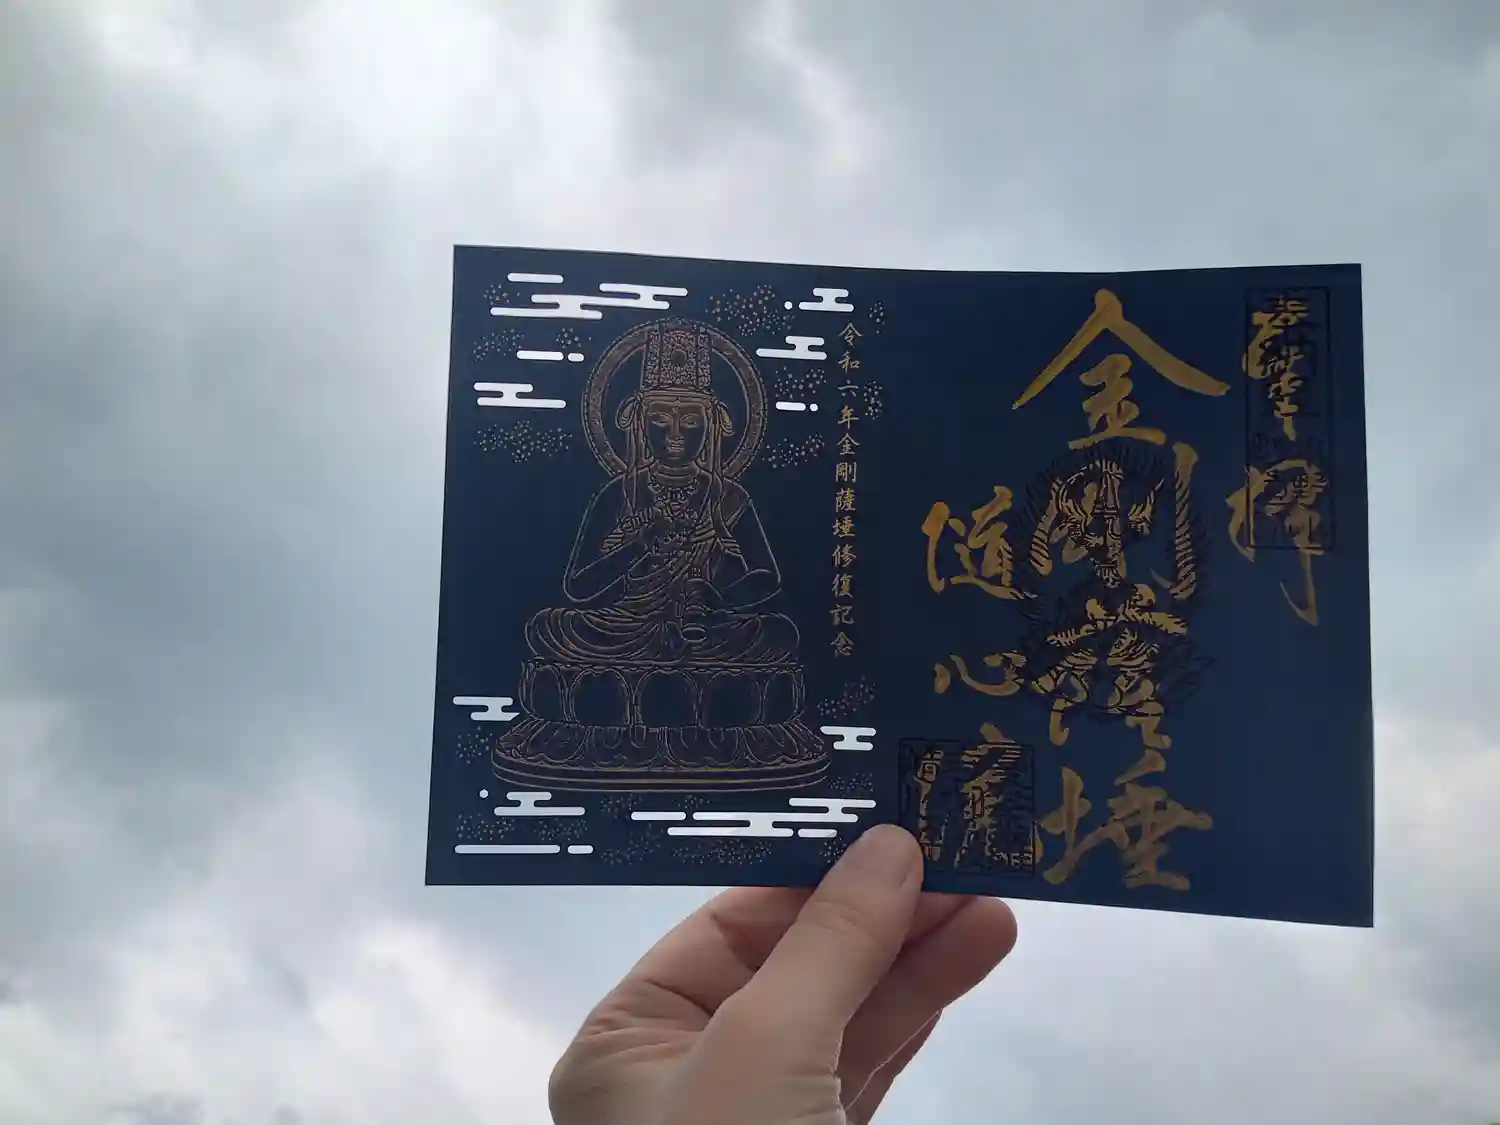 奉拝
金剛薩埵
隨心院
令和六年金剛薩埵修復記念